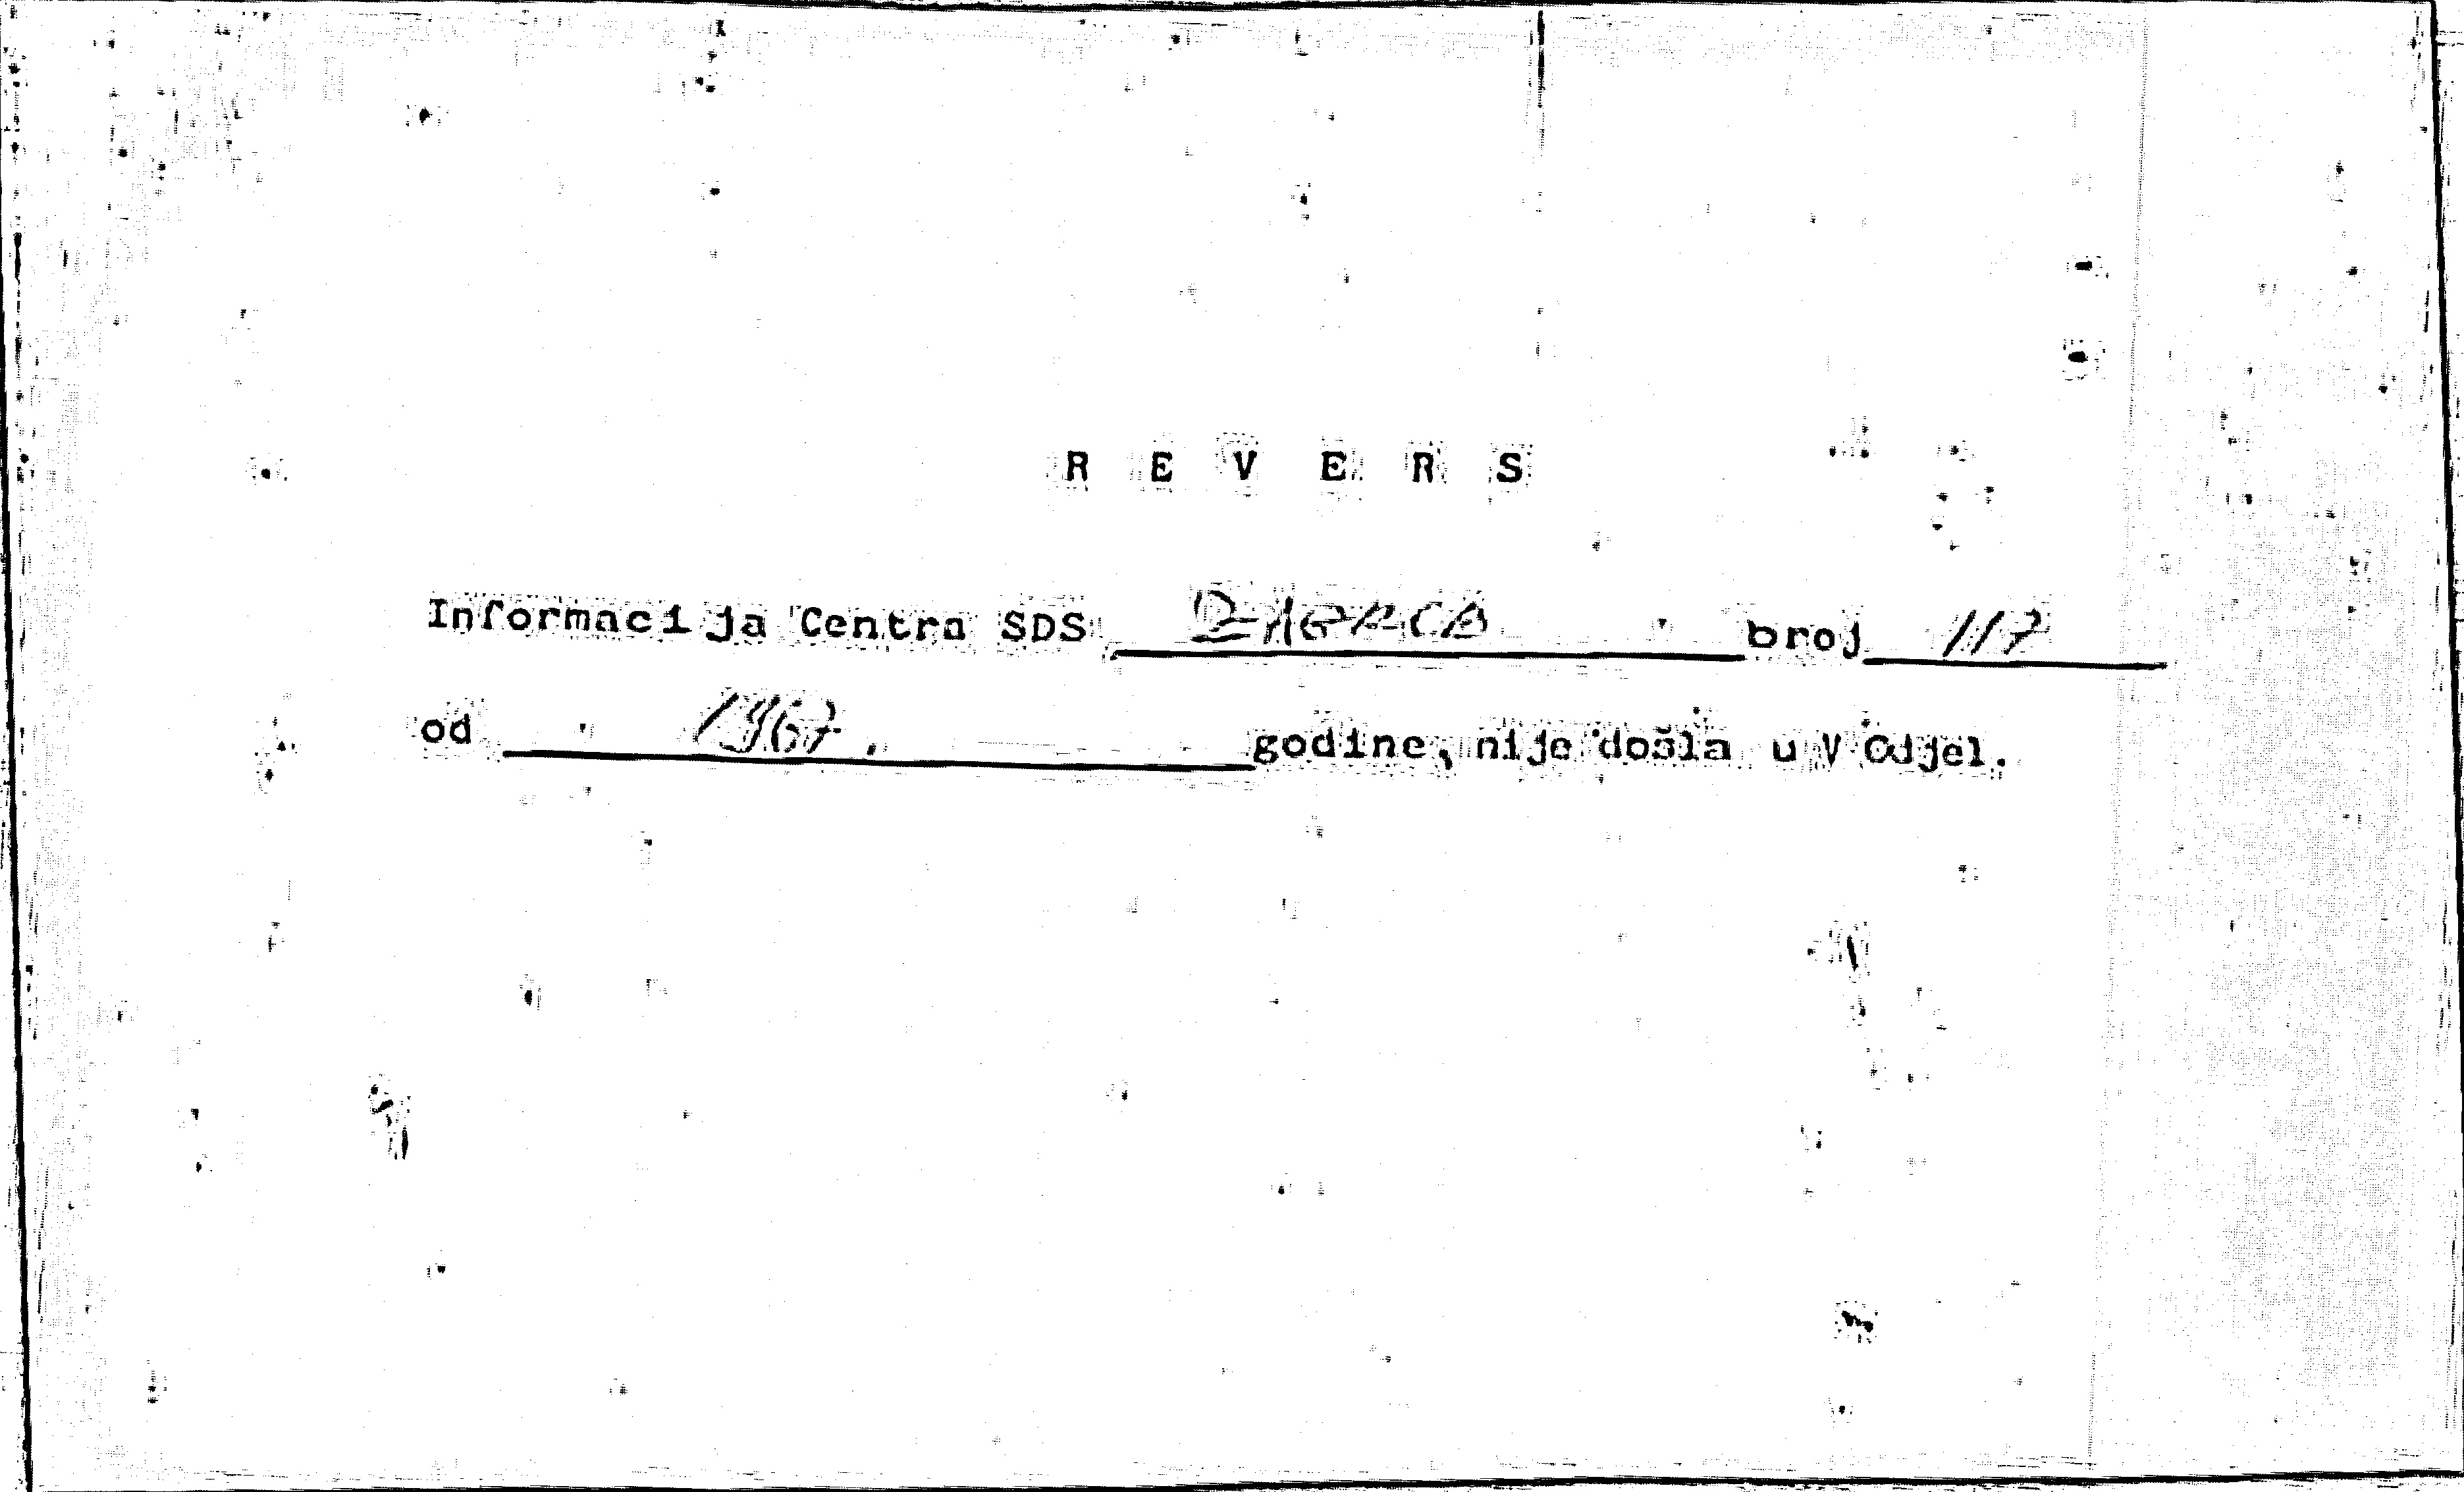 R E V E R S
Informacija Centra SDS broj 117
od 1967. godine, nije došla u V Odjel.